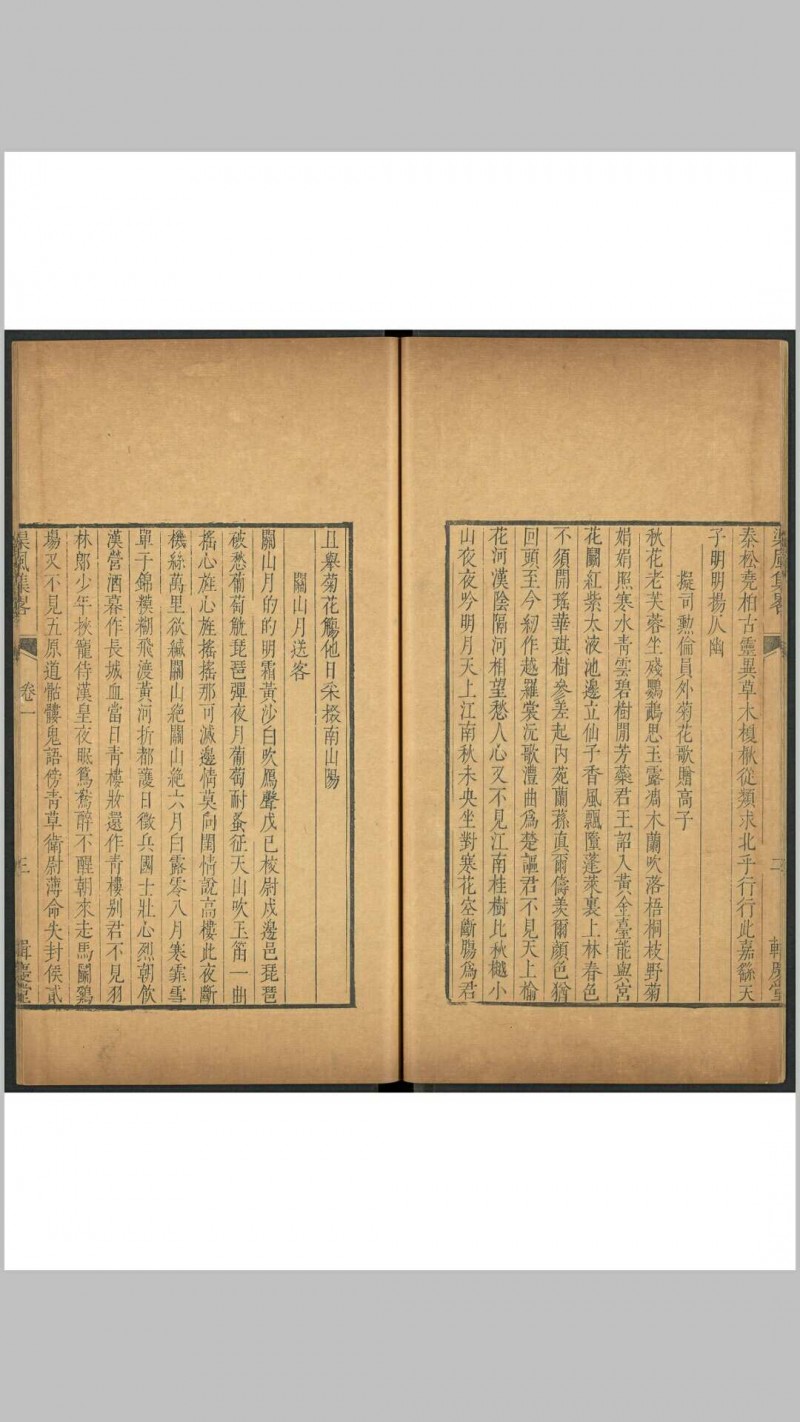 秦松堯柏古靈異草木榎楸從類求北乎行行此嘉繇天
子明明揚仄幽
擬司勲倫員外菊花歌贈高子
秋花老芙蓉坐殘鸚鵡思玉露凋木蘭吹落梧桐枝野菊
娟娟照寒水靑雲碧樹閒芳蘂君王詔入黃金臺能與宮
花鬭紅紫太液池邊立仙子香風飄墮蓬萊裏上林春色
不須開瑤華琪樹參差起內苑蘭蓀眞爾儔美爾顏色猶
回頭至今紉作越羅裳沅歌澧曲爲楚謳君不見天上榆
花河漢陰隔河相望愁人心又不見江南桂樹比秋樾小
山夜夜吟明月天上江南秋未央坐對寒花空斷腸爲君
且舉菊花觴他日采掇南山陽
關山月送客
關山月的的明霜黃沙白吹鴈聲戊已校尉戍邊邑琵琶
破愁葡萄觥琵琶彈夜月葡萄耐蚤征天山吹玉笛一曲
搖心旌心旌搖搖那可滅邊情莫向閨情說高樓此夜斷
機絲萬里欲緘關山絶關山絶六月白露零八月寒霏雪
單于錦模糊飛渡黃河折都護日徵兵國士壯心烈朝飮
漢營酒暮作長城血當日靑樓妝還作靑樓別君不見羽
林郞少年挾寵侍漢皇夜眠鴛鴦醉不醒朝來走馬鬭鷄
場又不見五原道骷髏鬼語傍靑草衛尉薄命失封侯貳
卷一
三